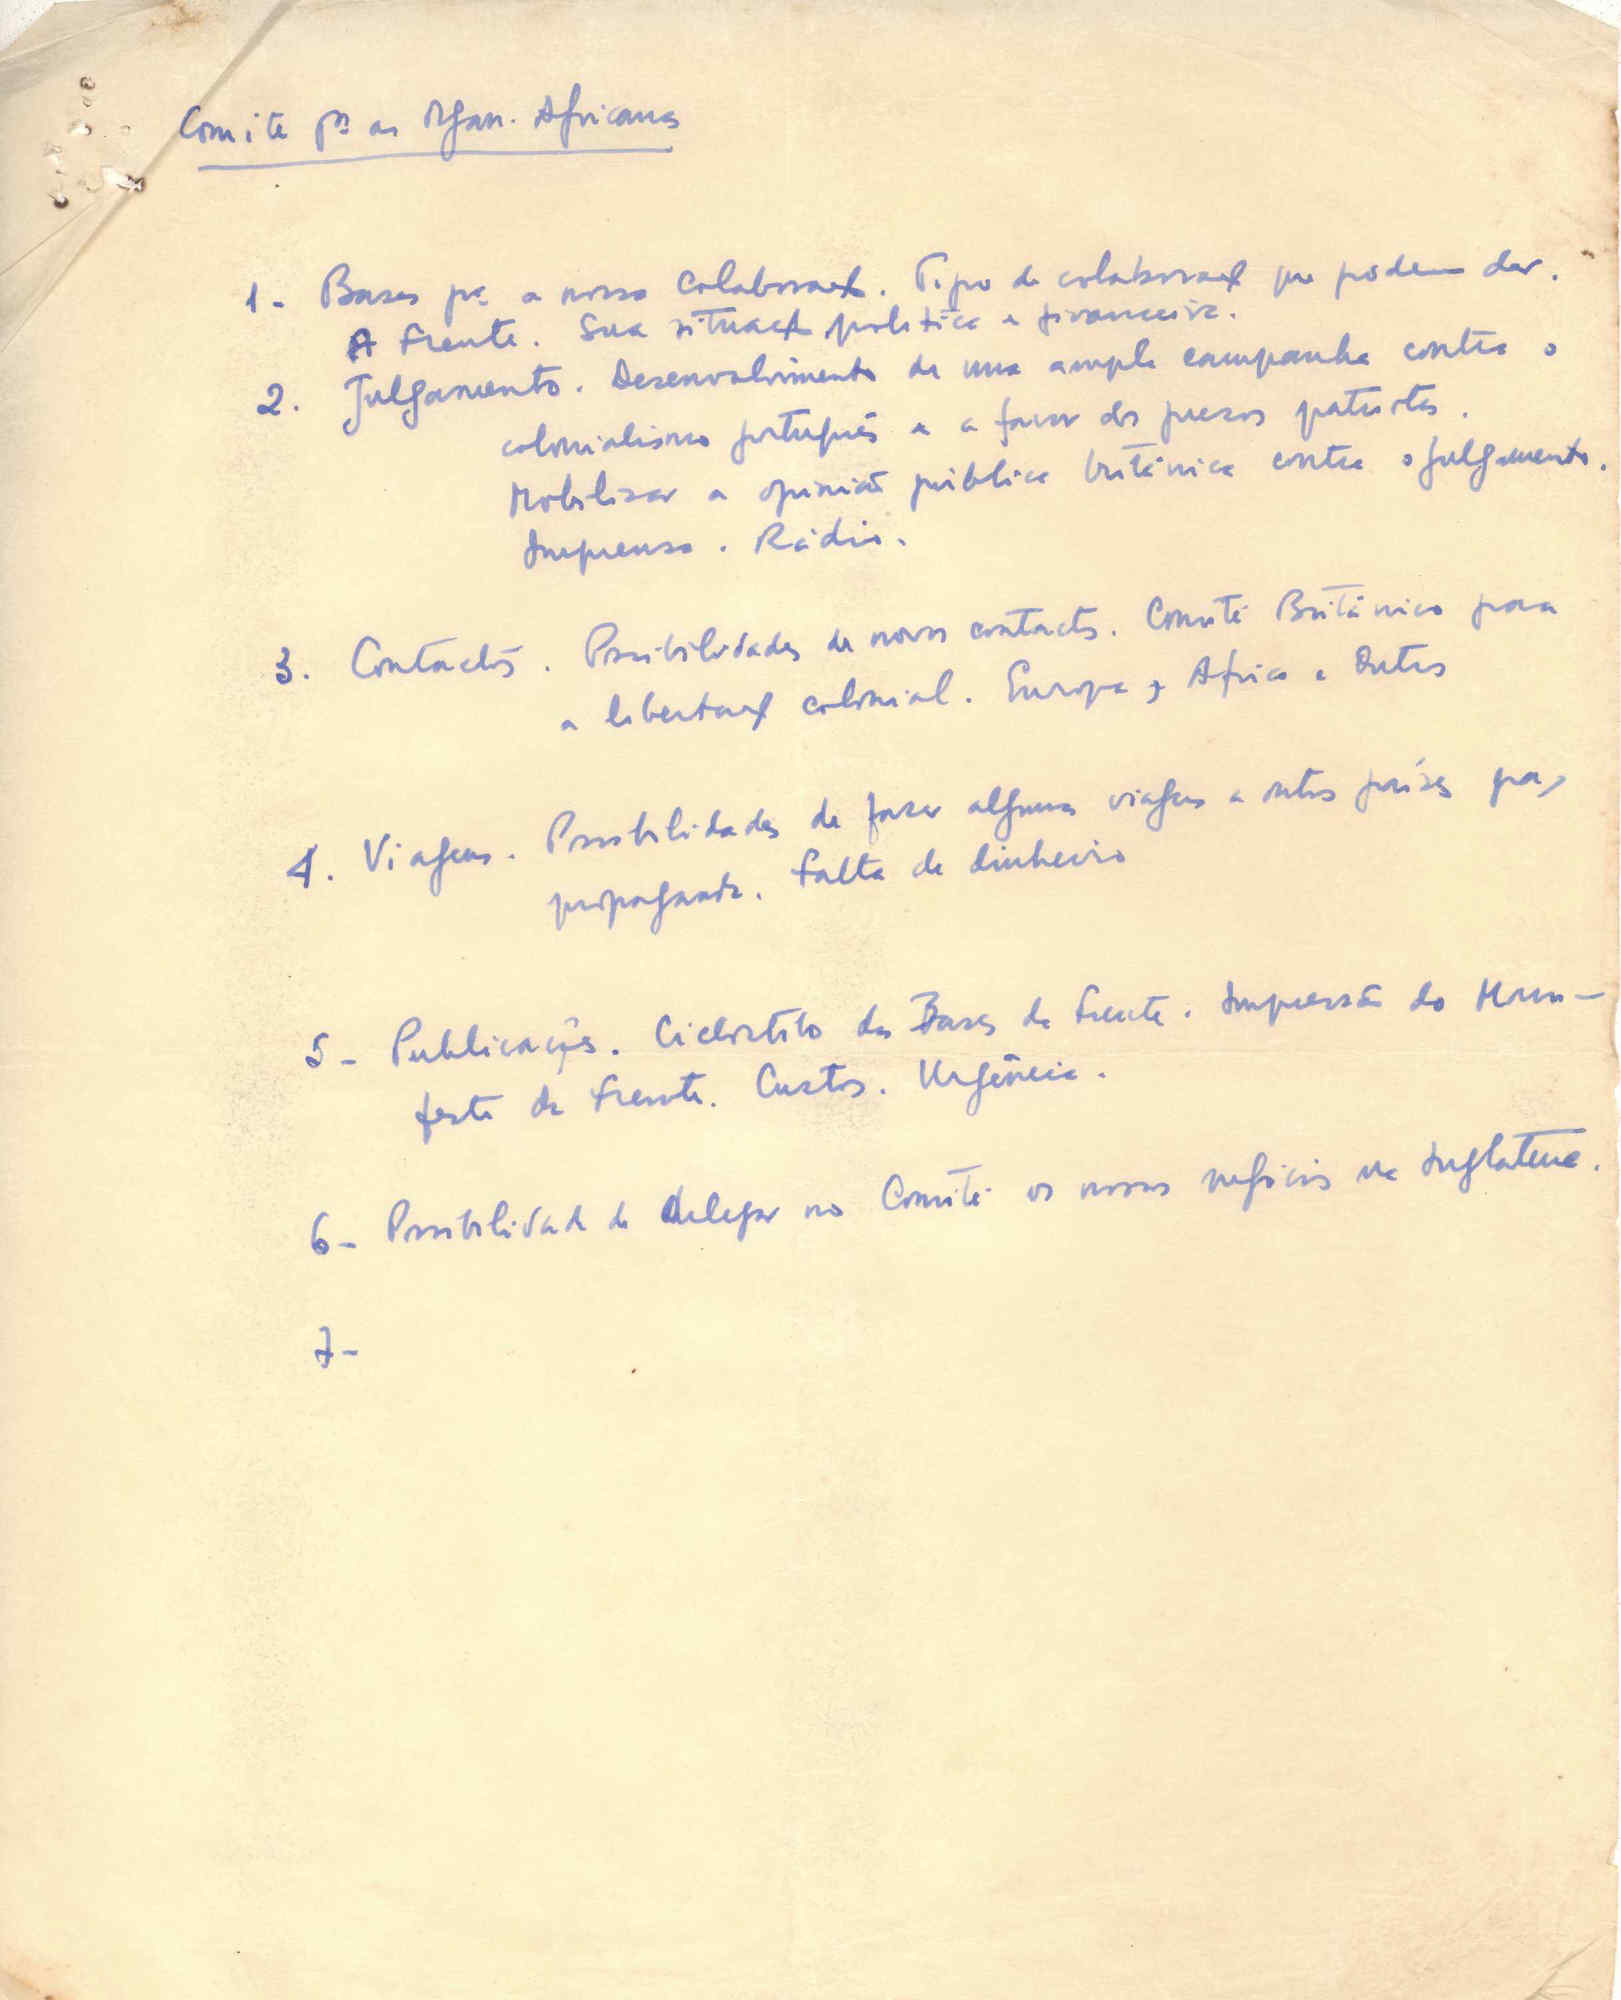 Comité pª as Organ. Africanas
1- Bases pª a nossa colaboraç. Tipo de colaboraç que podem dar.
A Frente. Sua situaç política e financeira.
2. Julgamento. Desenvolvimento de uma ampla campanha contra o
colonialismo português e a favor dos presos patriotas.
Mobilizar a opinião pública britânica contra o julgamento.
Imprensa. Rádio.
3. Contactos. Possibilidades de novos contactos. Comité Britânico para
a libertaç colonial. Europa, Africa e Outros
4. Viagens. Possibilidades de fazer algumas viagens a outros países para
propaganda. Falta de dinheiro
5- Publicações. Ciclostilo das Bases da Frente. Impressão do Mani-
festo da Frente. Custos. Urgência.
6- Possibilidade de delegar no Comité os nossos negócios na Inglaterra.
7-